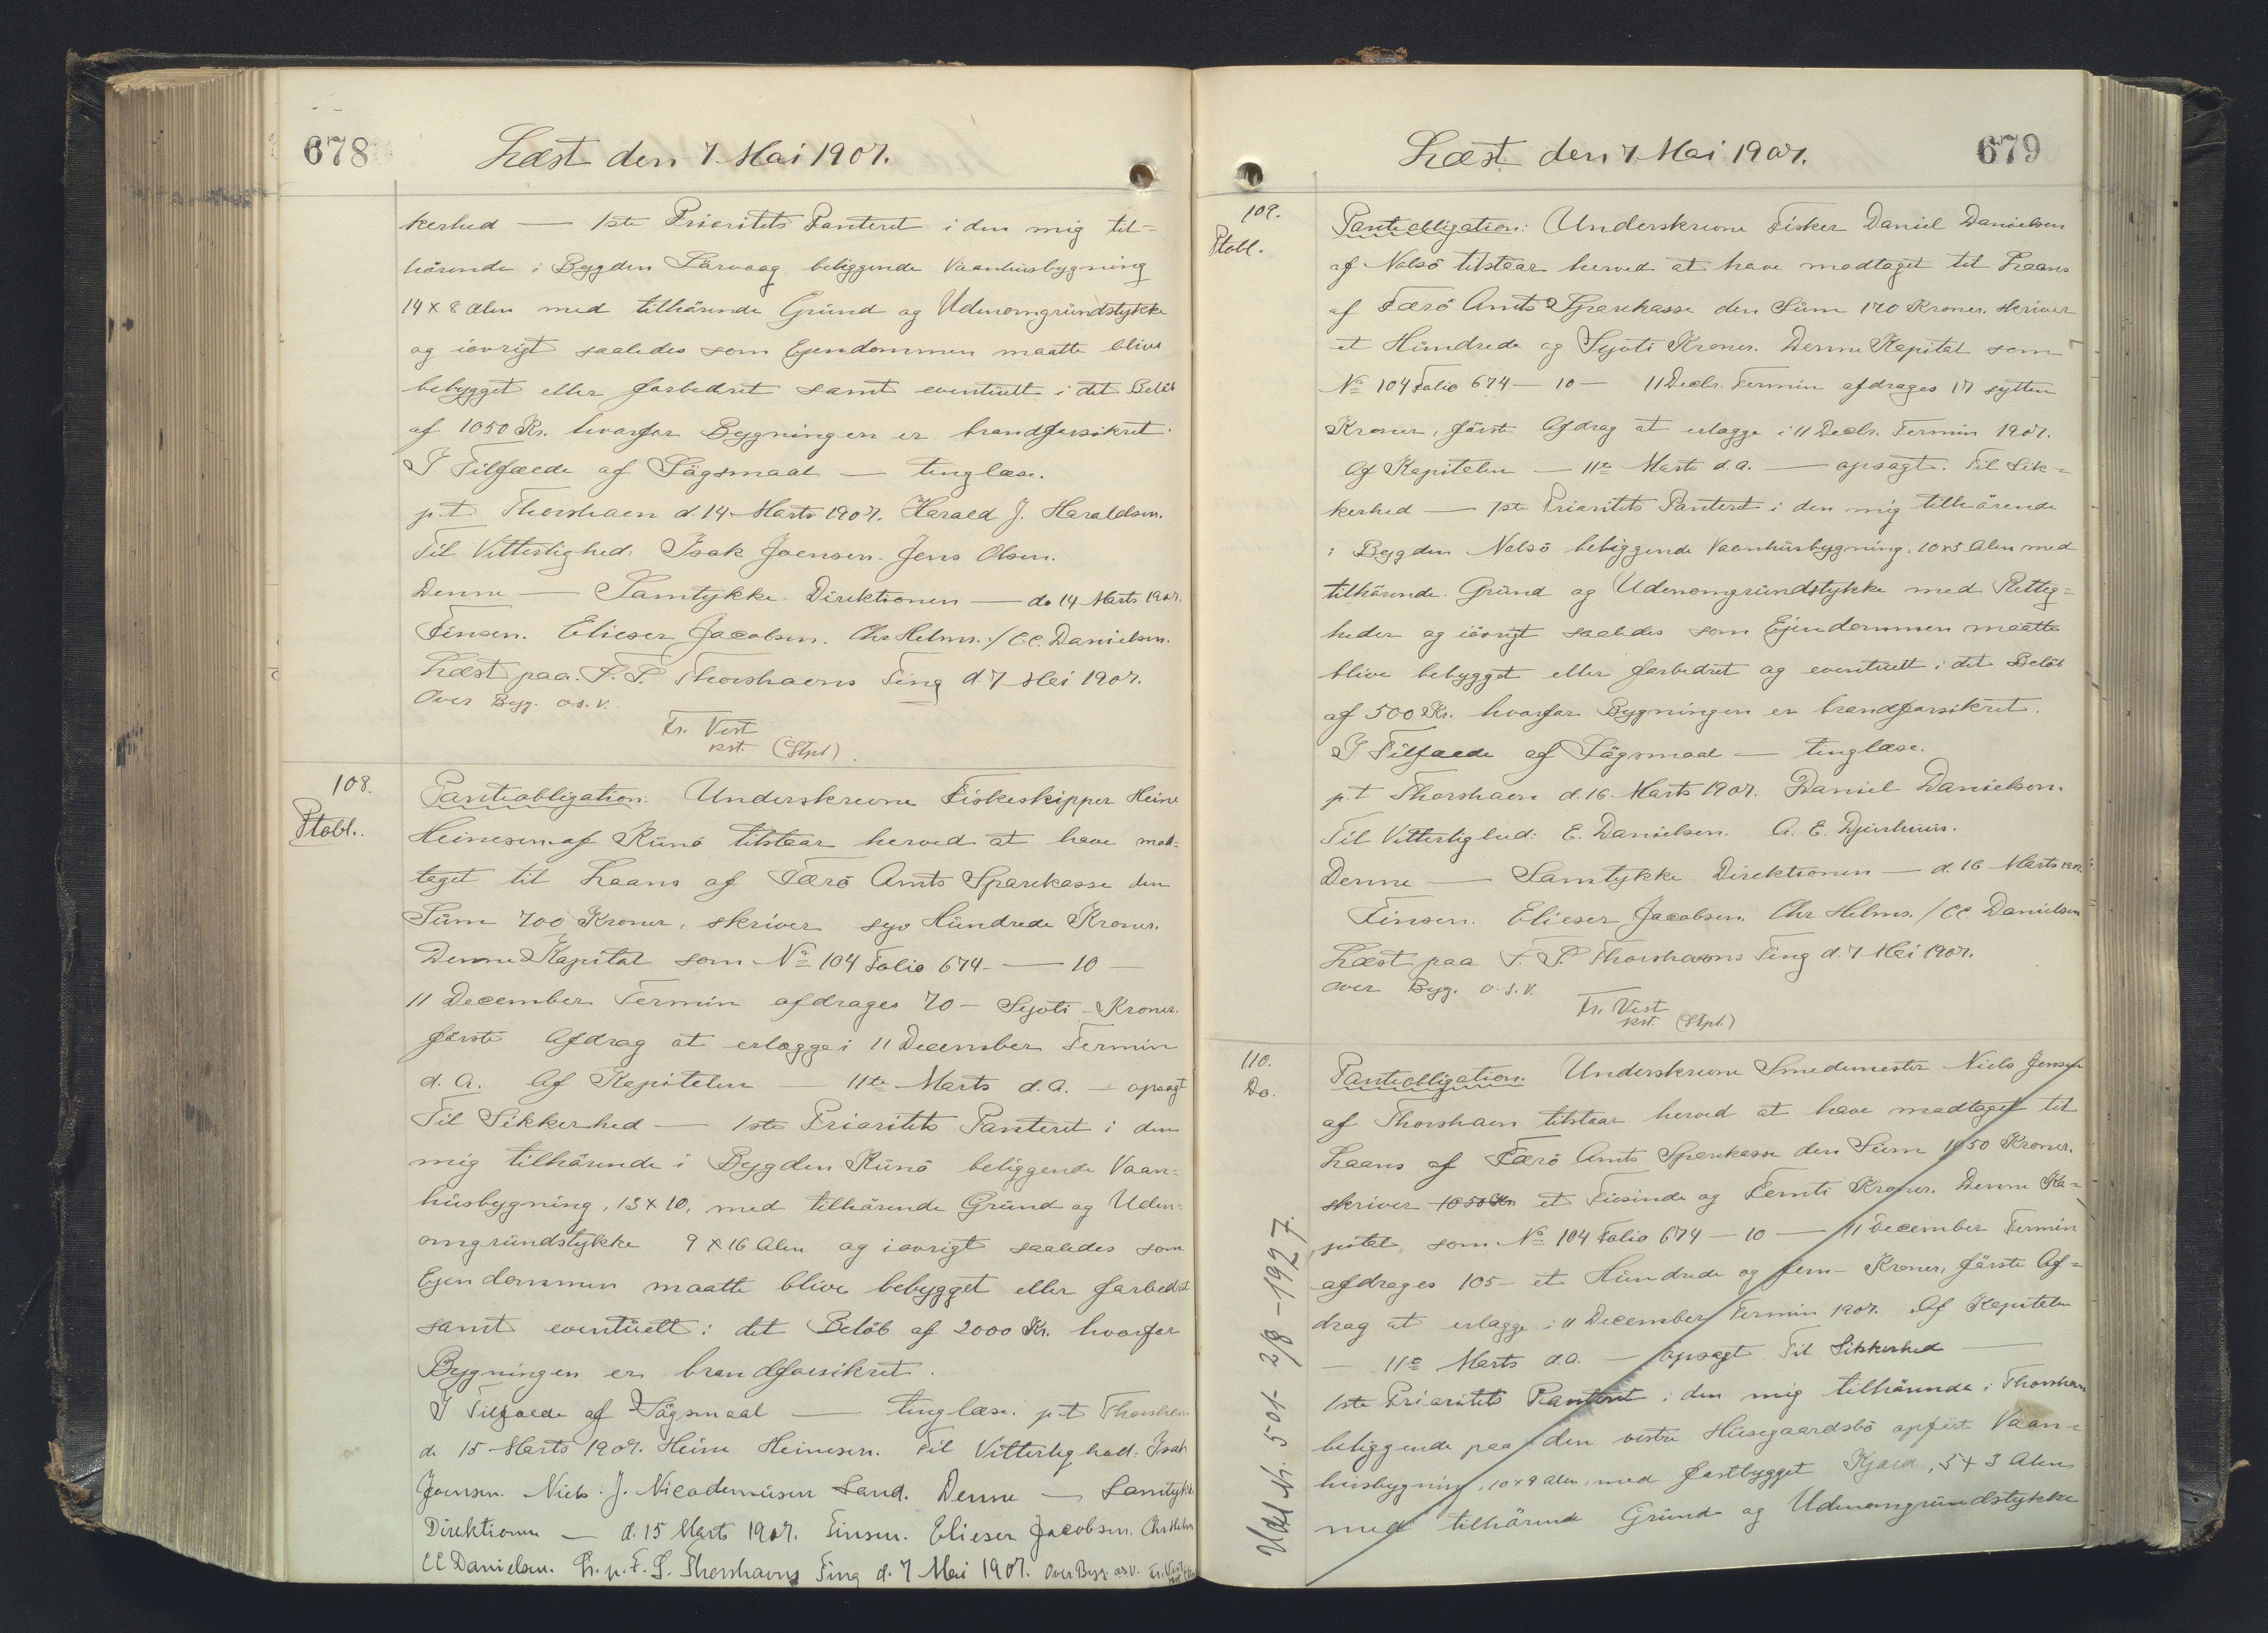 678
Læst den 7. Mai 1907.
kerhed — 1ste Prioritets Panteret i den mig til=
hörende i Bygden Särvaag beliggende Vaanhusbygning
14 x 8 Alen med tilhörende Grund og Udenomgrundstykke
og iøvrigt saaledes som Ejendommen maatte blive
bebygget eller forbedret samt eventuelt i det Belöb
af 1050 Kr. hvorfor Bygningen er brandforsikret.
I Tilfælde af Sögsmaal — tinglæse.
p.t. Thorshavn d. 14 Marts 1907. Harald J. Haraldsen.
Til Vitterlighed: Isak Joensen. Jens Olsen.
Denne — Samtykke. Direktionen — d. 14 Marts 1907.
Finsen. Elieser Jacobsen. Chr Helms. / CC. Danielsen.
Læst paa F. S. Thorshavns Ting d 7 Mai 1907.
Over Byg. o.s.v.
Fr. Vest
kst. (Stpl)
108.
Ptobl.
Panteobligation: Underskrevne Fiskeskipper Heine
Heinesen af Kunö tilstaar herved at have mod=
taget til Laans af Færö Amts Sparekasse den
Sum 700 Kroner, skriver syv Hundrede Kroner.
Denne Kapital som No 104 Folio 674 — 10 —
11 December Termin afdrages 70 - Syvti - Kroner.
förste Afdrag at erlægge i 11 December Termin
d. A. Af Kapitalen — 11te Marts d.A. — opsagt
Til Sikkerhed — 1ste Prioritets Panteret i den
mig tilhörende i Bygden Kunö beliggende Vaan=
husbygning, 13 x 10, med tilhörende Grund og Uden=
omgrundstykke 9 x 16 Alen og iøvrigt saaledes som
Ejendommen maatte blive bebygget eller forbedret
samt eventuelt i det Belöb af 2000 Kr. hvorfor
Bygningen er brandforsikret.
I Tilfælde af Sögsmaal — tinglæse. p.t. Thorshavn
d. 15 Marts 1907. Heine Heinesen. Til Vitterlighed: Isak
Joensen. Niels J. Nicodemusen Sand. Denne — Samtykke
Direktionen — d. 15 Marts 1907. Finsen. Elieser Jacobsen. Chr Helms
CC Danielsen. L. p. F. S. Thorshavns Ting d. 7 Mai 1907. Over Byg. o.s.v. Fr. Vest
kst.
Læst den 7 Mai 1907.
679
109.
Ptobl.
Panteobligation: Underskrevne Fisker Daniel Danielsen
af Nolsö tilstaar herved at have modtaget til Laans
af Færö Amts Sparekasse den Sum 170 Kroner. skriver
et Hundrede og Syvti Kroner. Denne Kapital som
No 104 Folio 674 — 10 — 11 Decbr. Termin afdrages 17 sytten
Kroner, förste Afdrag at erlægge i 11 Decbr. Termin 1907.
Af Kapitalen — 11te Marts d.A. — opsagt. Til Sik=
kerhed — 1ste Prioritets Panteret i den mig tilhörende
i Bygden Nolsö beliggende Vaanhusbygning. 10x5 Alen med
tilhörende Grund og Udenomgrundstykke med Rettig=
heder og iövrigt saaledes som Ejendommen maatte
blive bebygget eller forbedret og eventuelt i det Belöb
af 500 Kr. hvorfor Bygningen er brandforsikret.
I Tilfælde af Sögsmaal — tinglæse.
p.t. Thorshavn d. 16 Marts 1907. Daniel Danielsen.
Til Vitterlighed: E. Danielsen. A. E. Djurhuus.
Denne — Samtykke Direktionen — d. 16 Marts 1907.
Finsen. Elieser Jacobsen. Chr Helms. / CC Danielsen
Læst paa F. S. Thorshavns Ting d. 7 Mai 1907.
Over Byg. o.s.v.
Fr. Vest
kst. (Stpl.)
110.
Do.
Panteobligation. Underskrevne Smedemester Niels Jensen
af Thorshavn tilstaar herved at have modtaget til
Laans af Færö Amts Sparekasse den Sum 1050 Kroner.
skriver 1050 Kr et Tusinde og Femti Kroner. Denne Ka=
pital, som No 104 Folio 674 — 10 — 11 December Termin
afdrages 105 - et Hundrede og fem - Kroner, förste Af=
drag at erlægge i 11 December Termin 1907. Af Kapitalen
— 11te Marts d.A. — opsagt Til Sikkerhed —
1ste Prioritets Panteret i den mig tilhörende i Thorshavn
beliggende paa den vestre Husegaardsbö opførte Vaan=
husbygning, 10 x 9 Alen, med fastbygget Kjøld, 5 x 3 Alen
med tilhörende Grund og Udenomgrundstykke
Udsl Nr. 501 - 2/8 - 1927.